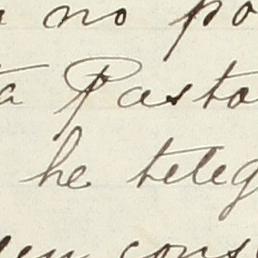 no po
ta Pasto
he teleg
cons